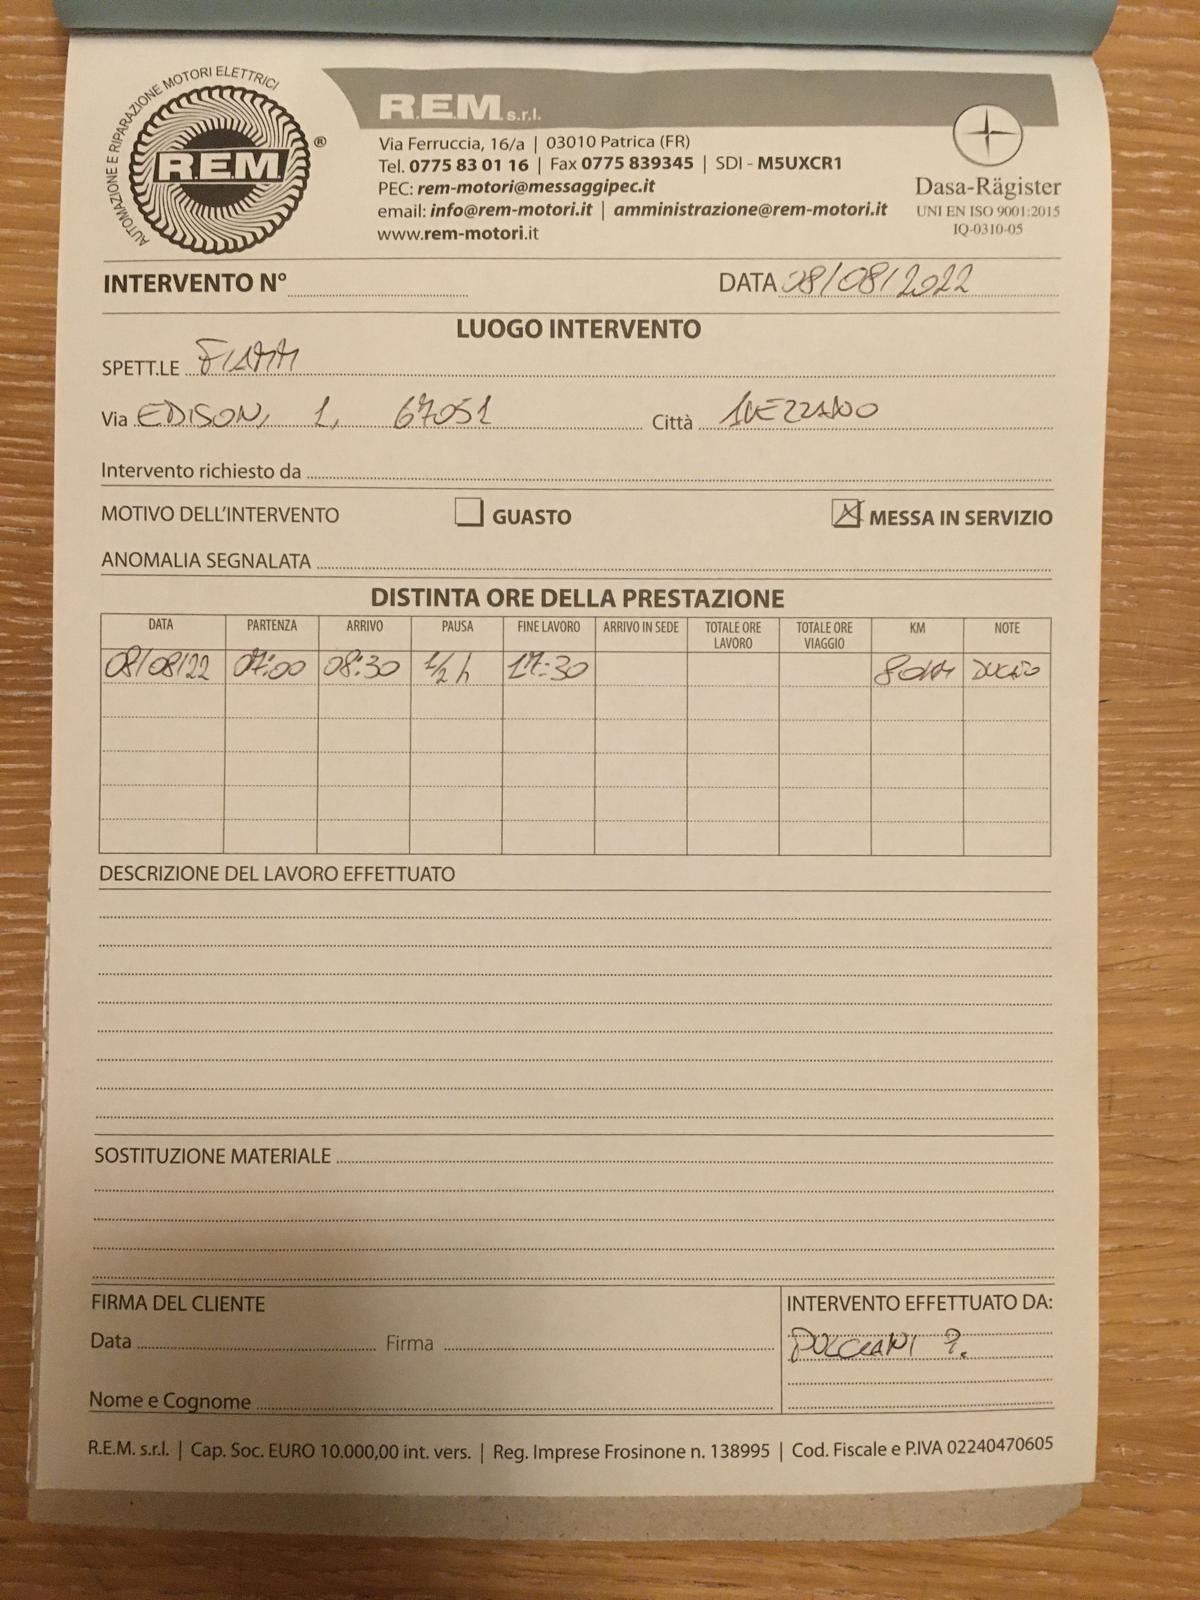 AUTOMAZIONE E RIPARAZIONE MOTORI ELETTRICI
R.E.M ®
R.E.M. s.r.l.
Via Ferruccia, 16/a | 03010 Patrica (FR)
Tel. 0775 83 01 16 | Fax 0775 839345 | SDI - M5UXCR1
PEC: rem-motori@messaggipec.it
email: info@rem-motori.it | amministrazione@rem-motori.it
www.rem-motori.it
Dasa-Rägister
UNI EN ISO 9001:2015
IQ-0310-05
INTERVENTO N° DATA 08/08/2022
LUOGO INTERVENTO
SPETT.LE FIAMM
Via EDISON, 1, 67051 Città AVEZZANO
Intervento richiesto da
MOTIVO DELL'INTERVENTO GUASTO MESSA IN SERVIZIO
ANOMALIA SEGNALATA
DISTINTA ORE DELLA PRESTAZIONE
DATA PARTENZA ARRIVO PAUSA FINE LAVORO ARRIVO IN SEDE TOTALE ORE LAVORO TOTALE ORE VIAGGIO KM NOTE
08/08/22 07:00 08:30 1/2 h 17:30 DUCATO
DESCRIZIONE DEL LAVORO EFFETTUATO
SOSTITUZIONE MATERIALE
FIRMA DEL CLIENTE
Data Firma
Nome e Cognome
INTERVENTO EFFETTUATO DA:
R.E.M. s.r.l. | Cap. Soc. EURO 10.000,00 int. vers. | Reg. Imprese Frosinone n. 138995 | Cod. Fiscale e P.IVA 02240470605